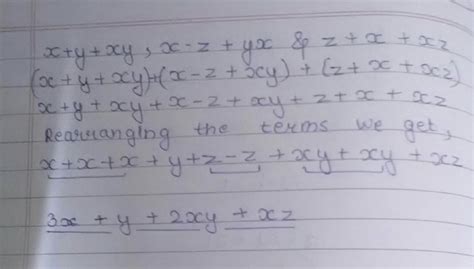 x+y+xy, x-z+yx & z+x+xz
(x+y+xy)+(x-z+xy)+(z+x+xz)
x+y+xy+x-z+xy+z+x+xz
Rearranging the terms we get,
x+x+x+y+z-z+xy+xy+xz
3x+y+2xy+xz